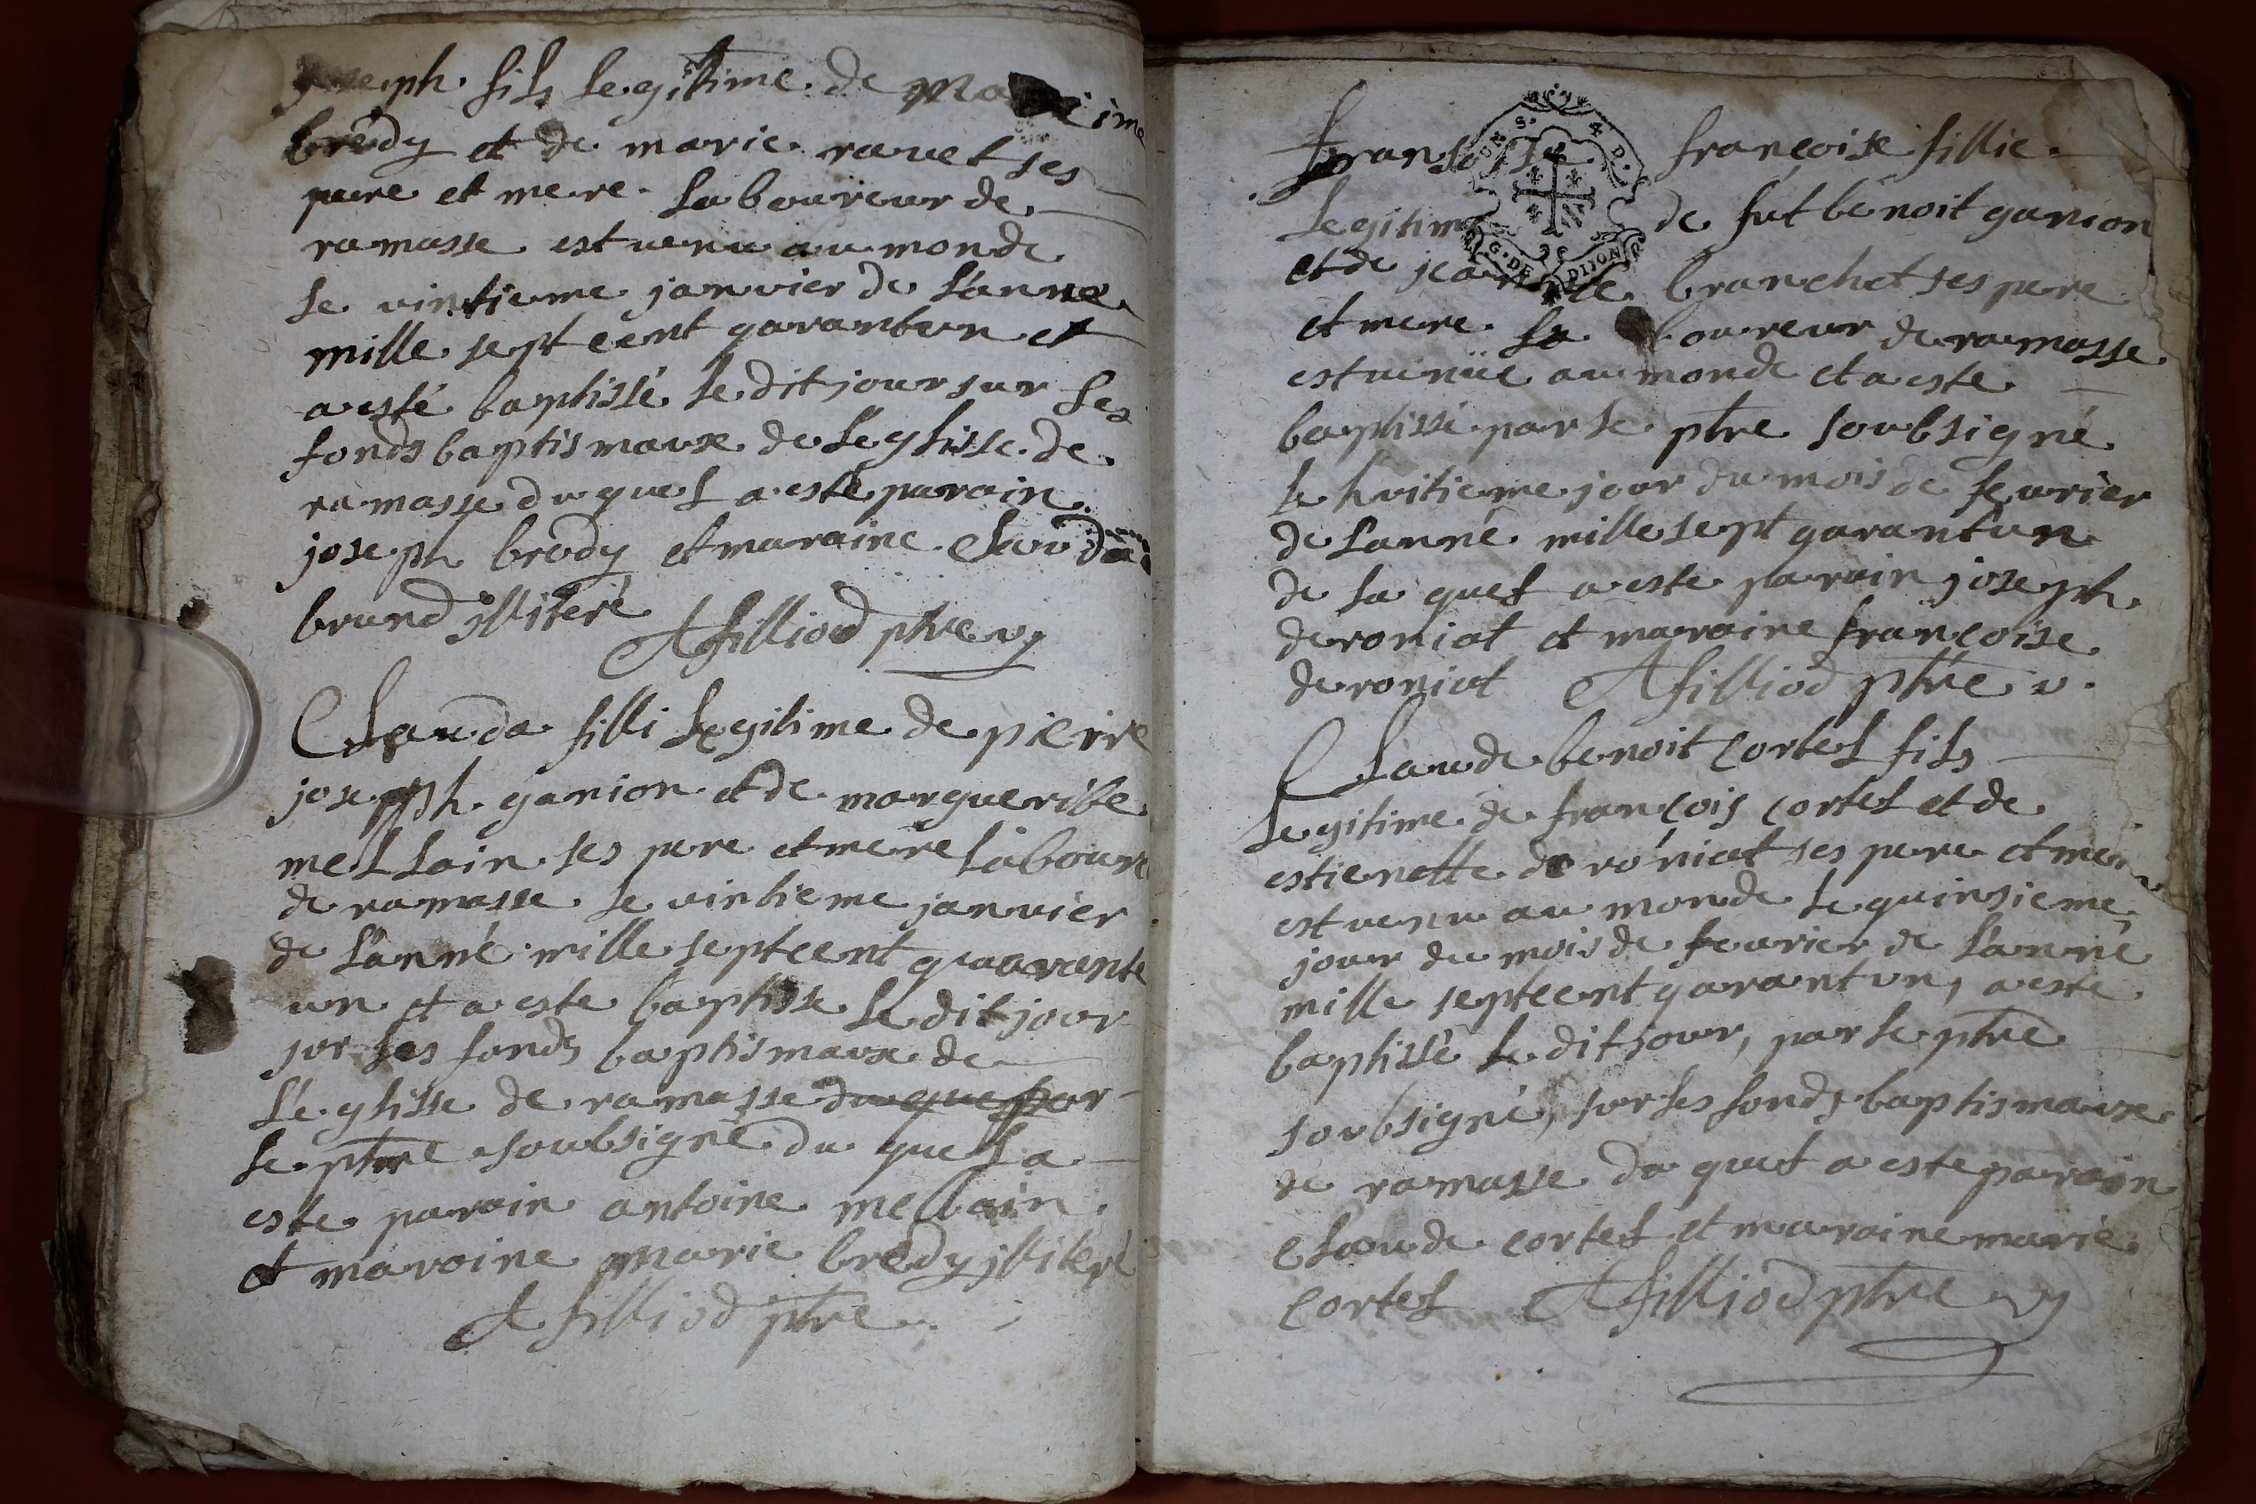 joseph fils legitime de maxime
bredy et de marie ravet ses
pere et mere laboureur de
ramasse est venu au monde
le vintieme janvier de l'anne
mille sept cent garantun et
a esté baptissé le dit jour sur les
fonds baptismaux de leglisse de
ramasse du quel a esté parain
joseph bredy et maraine clauda
brund jlliteré
A filliod ptre vy
Clauda filli legitime de pierre
joseph ganion et de margueritte
mellain ses pere et mere laboure
de ramasse le vintieme janvier
de l'anné mille septcent quarante
un et a este baptisse le dit jour
sur les fonds baptismaux de
l'eglisse de ramasse duque par
le ptre soubsigné du quel a
este parain antoine mellain
et maraine marie bredy jlliteré
A filliod ptre
fransoise françoise fillie
legitime de fût benoit ganion
et de jeanne branchet ses pere
et mere laboureur de ramasse
est venüe au monde et a este
baptissé par le ptre soubsigné
le huitieme jour du mois de fevrier
de l'anné mille sept garantun
de la quel a este parain joseph
deroniat et maraine françoise
deroniat A filliod ptre v.
UN S. 4 D.
G. DE DIJON
Claude benoit cortel fils
legitime de françois cortel et de
estienette de roniat ses pere et mere
est venu au monde le quinsieme
jour du mois de fevrier de l'anné
mille septcent garantun, a este
baptissé le dit jour, par le ptre
soubsigné, sur les fonds baptismaux
de ramasse du quel a este parain
claude cortel et maraine marie
cortel A filliod ptre vy